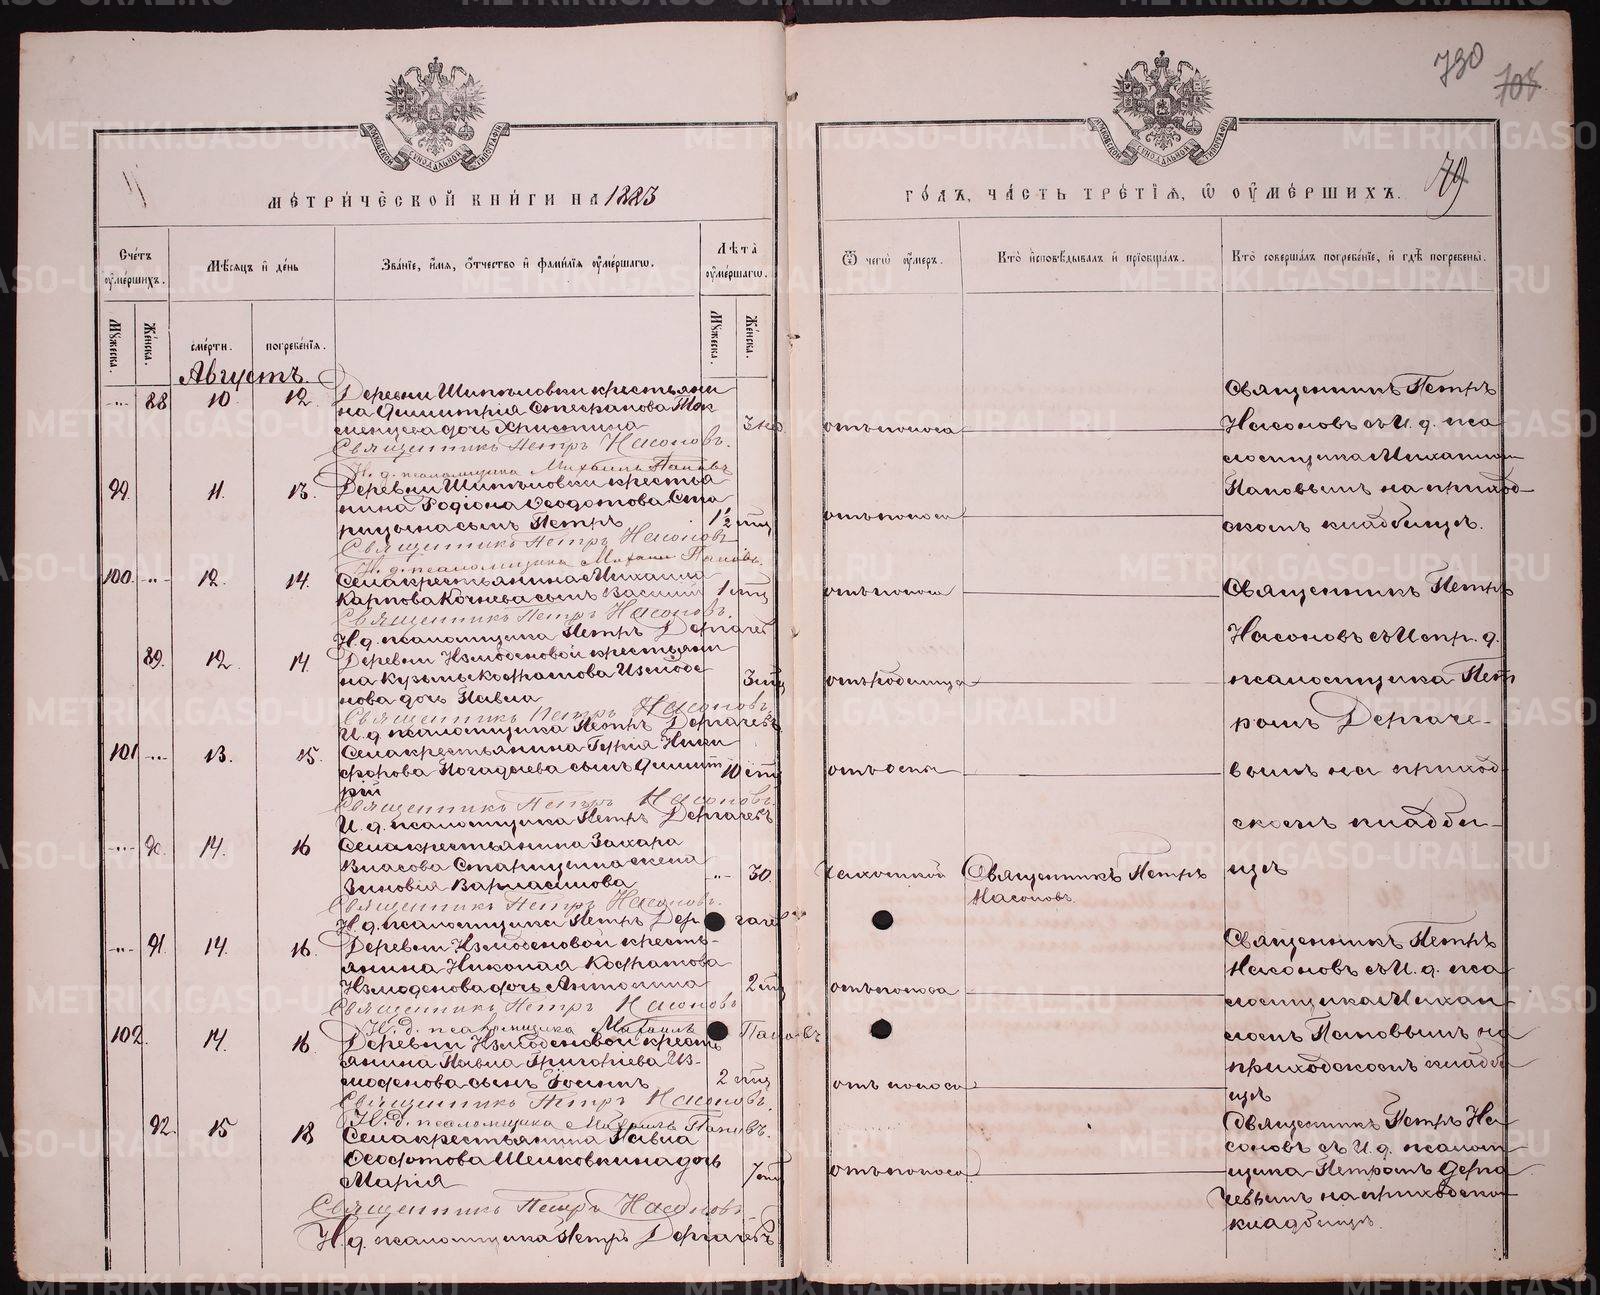 730
708
79
МЕТРИЧЕСКОЙ КНИГИ НА 1883
ГОДЪ, ЧАСТЬ ТРЕТІЯ, Ѿ ОУМЕРШИХЪ.
Счетъ оумершихъ.
Мѣсяцъ и день
Званіе, имя, отчество и фамилія оумершагѡ.
Лѣта оумершагѡ.
Ѿ чегѡ оумеръ.
Кто исповѣдывалъ и пріобщалъ.
Кто совершалъ погребеніе, и гдѣ погребены.
Мужеска.
Женска.
смерти.
погребенія.
Мужеска.
Женска.
Августъ.
88 10 12.
Деревни Шипиловки крестьяни
на Димитрія Стефанова
дочь Христина
Священникъ Петръ Насоновъ.
И. д. псаломщика Михаилъ Поповъ
отъ поноса
Священникъ Петръ
Насоновъ съ И. д. пса
ломщика Михаиломъ
Поповымъ на приход-
скомъ кладбищѣ.
99. 11. 13.
Деревни Шипиловки кресть
янина Родіона Ѳеодотова Ста
рицына сынъ Петръ
1½
Священникъ Петръ Насоновъ
И. д. псаломщика Михаилъ Поповъ.
отъ поноса
100. 12. 14.
Села крестьянина Михаила
Карпова Кочнева сынъ Василій
1
Священникъ Петръ Насоновъ.
И. д. псаломщика Петръ Дергачевъ
отъ поноса
Священникъ Петръ
Насоновъ съ Испр. д.
псаломщика Пет
ромъ Дергаче-
вымъ на приход-
скомъ кладби-
щѣ
89. 12. 14.
Деревни Измоденовой крестьяни
на Кузьмы Кондратова Измоде
нова дочь Павла
3
Священникъ Петръ Насоновъ.
И. д. псаломщика Петръ Дергачевъ
отъ родимца
101 13. 15.
Села крестьянина Гурія Ники
форова Погадаева сынъ Димит
рій
10
Священникъ Петръ Насоновъ.
И. д. псаломщика Петръ Дергачевъ
отъ оспы
90. 14. 16
Села крестьянина Захара
Власова Старицына жена
Зиновія Варлаамова
30.
Священникъ Петръ Насоновъ.
И. д. псаломщика Петръ Дергачевъ
Чахоткой
Священникъ Петръ
Насоновъ
91. 14. 16.
Деревни Измоденовой кресть-
янина Николая Кондратова
Измоденова дочь Антонина
2
Священникъ Петръ Насоновъ
И. д. псаломщика Михаилъ Поповъ
отъ поноса
Священникъ Петръ
Насоновъ съ И. д. пса
ломщика Михаи
ломъ Поповымъ на
приходскомъ кладби
щѣ
102. 14. 16.
Деревни Измоденовой кресть
янина Павла Григоріева Из-
моденова сынъ Іосифъ
2
Священникъ Петръ Насоновъ.
И. д. псаломщика Михаилъ Поповъ.
отъ поноса
92. 15 18
Села крестьянина Павла
Ѳеодотова Шелковкина дочь
Марія
7
Священникъ Петръ Насоновъ
И. д. псаломщика Петръ Дергачевъ.
отъ поноса
Священникъ Петръ На
соновъ съ И. д. псалом
щика Петромъ Дерга
чевымъ на приходском
кладбищѣ.
METRIKI.GASO-URAL.RU